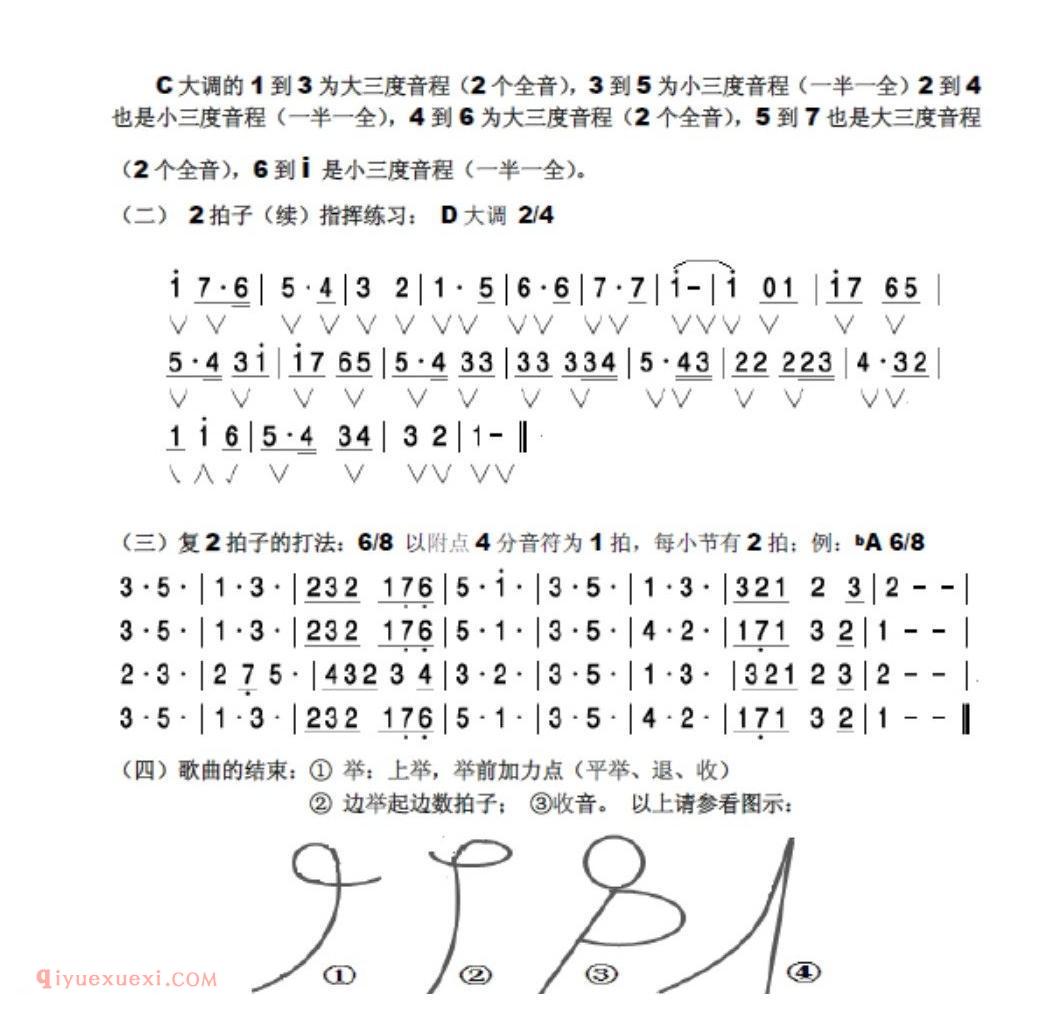 C大调的1到3为大三度音程（2个全音），3到5为小三度音程（一半一全）2到4
也是小三度音程（一半一全），4到6为大三度音程（2个全音），5到7也是大三度音程
（2个全音），6到i̇ 是小三度音程（一半一全）。
（二） 2拍子（续）指挥练习： D大调 2/4
i̇ 7·6| 5·4|3 2|1· 5|6·6|7·7|i̇-|i̇ 01 |i̇7 65 |
∨ ∨ ∨ ∨ ∨ ∨ ∨∨ ∨∨ ∨∨ ∨∨∨ ∨ ∨ ∨
5·4 3i̇|i̇7 65|5·4 33|33 334|5·43|22 223|4·32|
∨ ∨ ∨ ∨ ∨ ∨ ∨ ∨ ∨∨ ∨ ∨ ∨∨
1 i̇ 6|5·4 34| 3 2|1-‖
\ ∧ √ ∨ ∨ ∨∨ ∨∨
（三）复2拍子的打法：6/8 以附点4分音符为1拍，每小节有2拍；例：ᵇA 6/8
3·5·|1·3·|232 17̣6̣|5·i̇·|3·5·|1·3·|321 2 3|2 - -|
3·5·|1·3·|232 17̣6̣|5·1·|3·5·|4·2·|17̣1 3 2|1 - -|
2·3·|2 7̣ 5·|432 3 4|3·2·|3·5·|1·3· |321 2 3|2 - - |
3·5·|1·3·|232 17̣6̣|5·1·|3·5·|4·2·|17̣1 3 2|1 - -‖
（四）歌曲的结束：① 举：上举，举前加力点（平举、退、收）
② 边举起边数拍子； ③收音。 以上请参看图示：
① ② ③ ④
qiyuexuexi.COM